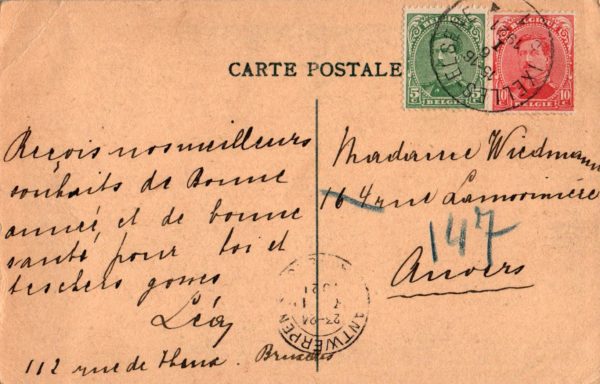 CARTE POSTALE
BELGIQUE
5c 5c
BELGIE
BELGIQUE
10 10
BELGIE
IXELLES-ELSENE
Reçois nos meilleurs
souhaits de Bonne
année, et de bonne
santé pour toi et
tes chers
Léa
112 rue de Bruxelles
Madame Wiedmann
164 rue Lamorinière
147
Anvers
ANTWERPEN
23-24